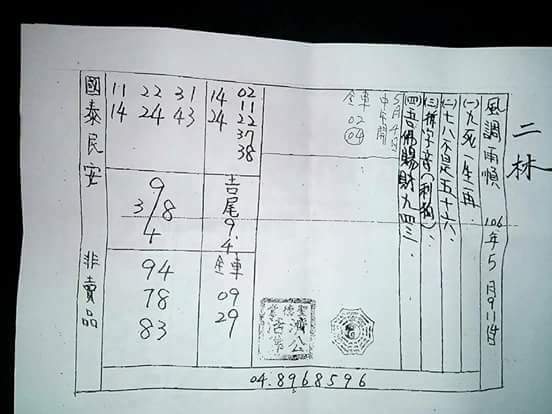 二林
風調雨順 106年5月9、11日
(一)九死一生一再、
(二)七八不是五十六、
(三)拼字音(利狗)、
(四)吾佛賜財九四三、
5月4日
中午開
全車
02
04
02 11 22 37 38
14 24
31 43
22 24
11 14
吉尾9.4
全車
09
29
9
3 8
4
94
78
83
國泰民安 非賣品
濟公
04.8968596